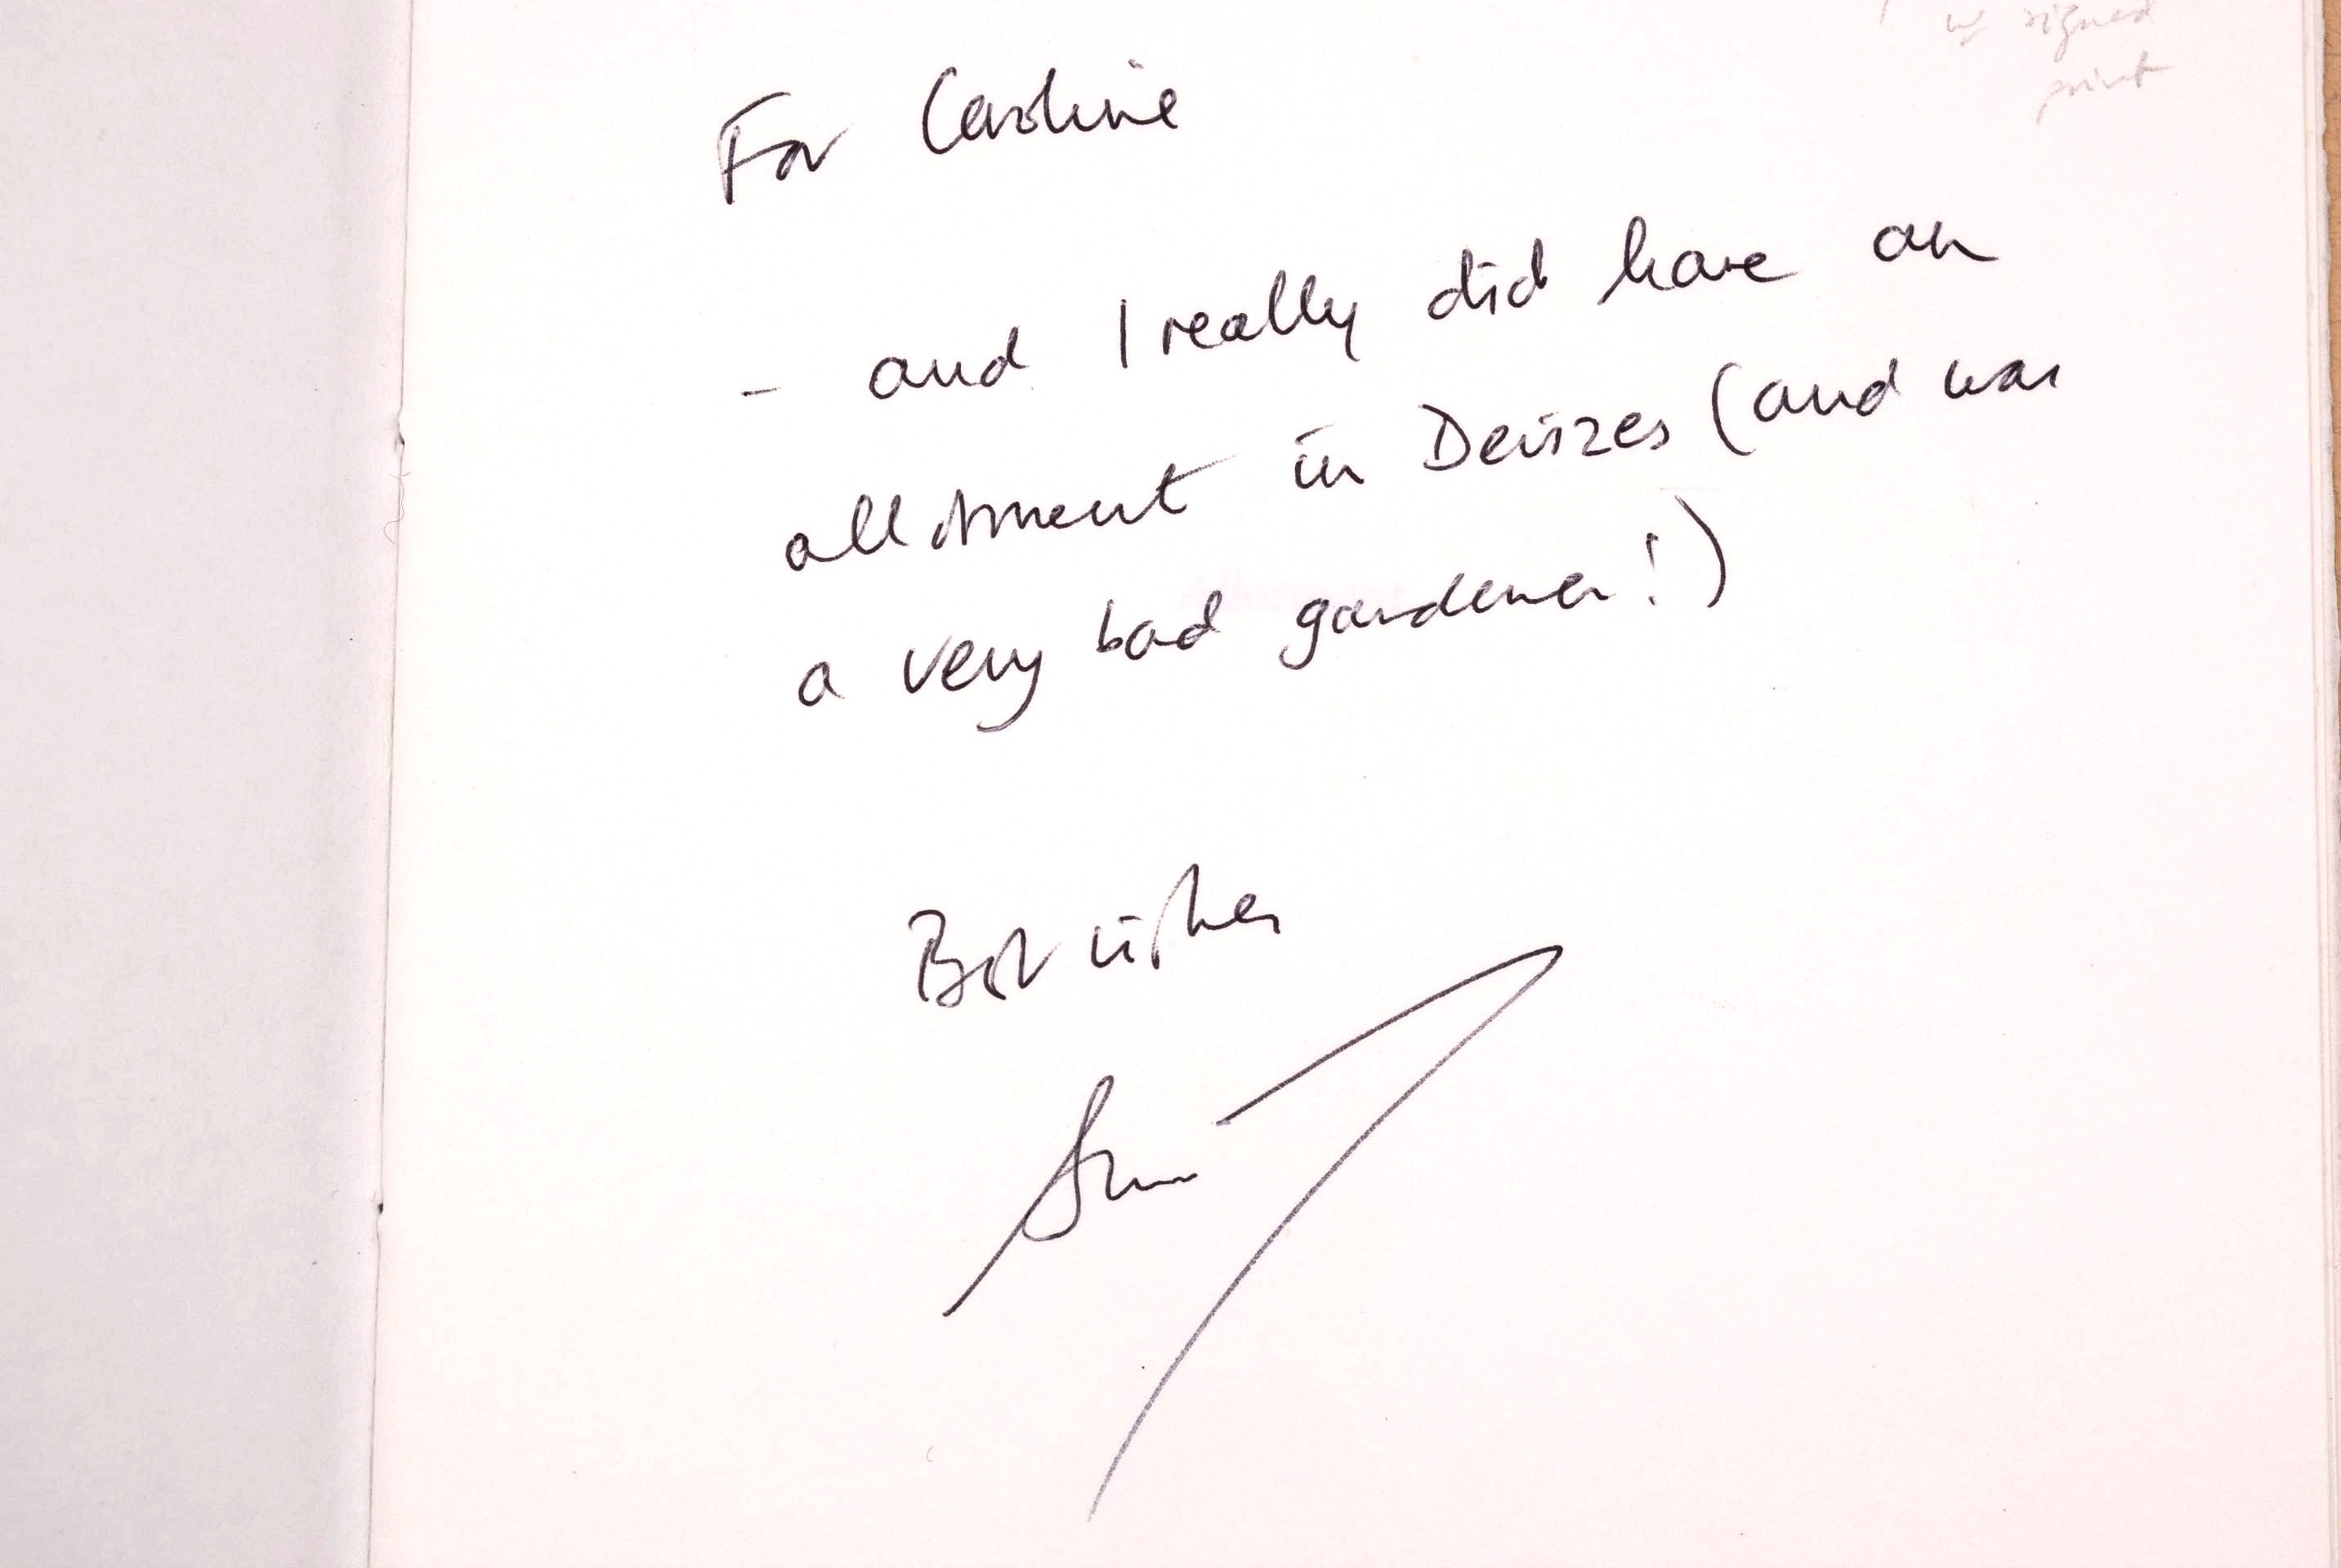 w/ signed
print
For Caroline
- and I really did have an
allotment in Devizes (and was
a very bad gardener!)
Best wishes